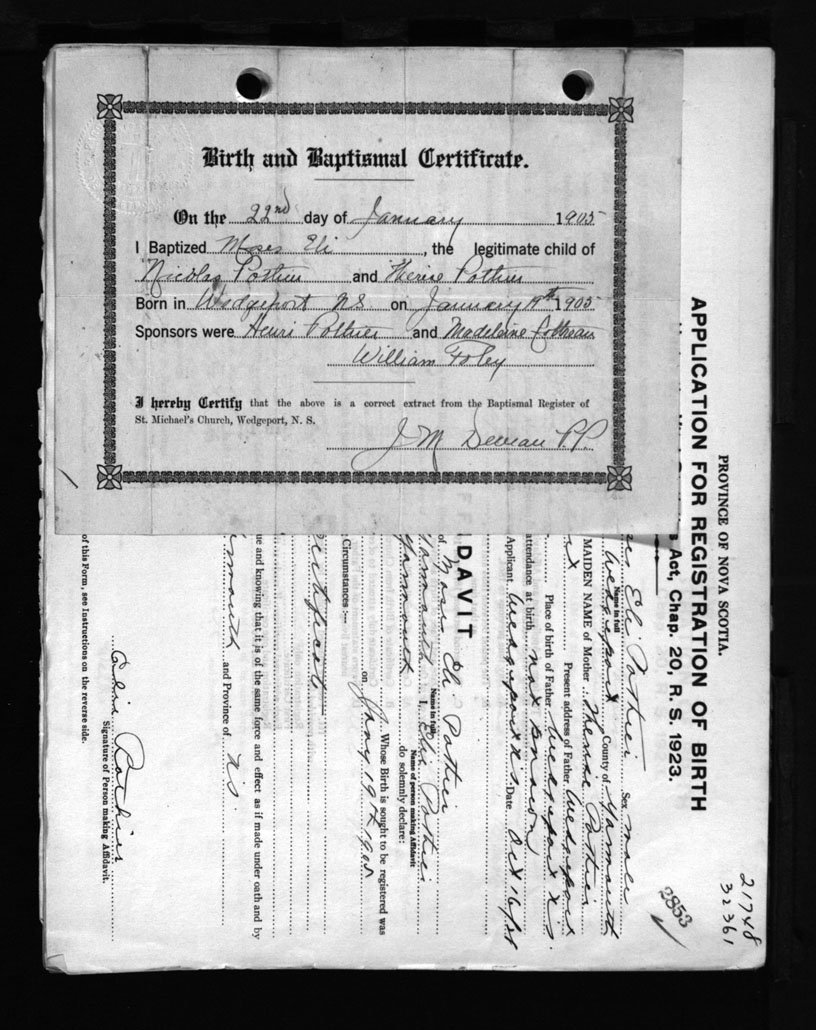 Birth and Baptismal Certificate.
On the 22nd day of January 1905
I Baptized Moses Eli, the legitimate child of
Nicolas Pothier and Thérèse Pothier
Born in Wedgeport N.S. on January 19th 1905
Sponsors were Henri Pothier and Madeleine
William Foley
I hereby Certify that the above is a correct extract from the Baptismal Register of
St. Michael's Church, Wedgeport, N. S.
J M P.P.
PROVINCE OF NOVA SCOTIA.
APPLICATION FOR REGISTRATION OF BIRTH
Act, Chap. 20, R. S. 1923.
21748
32361
2853
Eli Pothier Sex Male
Name in full
Wedgeport County of Yarmouth
MAIDEN NAME of Mother Therese Pothier
Present address of Father Wedgeport
Place of birth of Father Wedgeport N.S.
attendance at birth not known
Applicant. Wedgeport N.S. Date Oct
DAVIT
of Moses Eli Pothier
Name in full
Yarmouth I, Pothier
Name of person making Affidavit
Yarmouth do solemnly declare:
Whose Birth is sought to be registered was
on Jany 19th 1905
Circumstances:—
ertificate
ue and knowing that it is of the same force and effect as if made under oath and by
mouth and Province of N.S.
Pothier
Signature of Person making Affidavit.
of this Form, see Instructions on the reverse side.